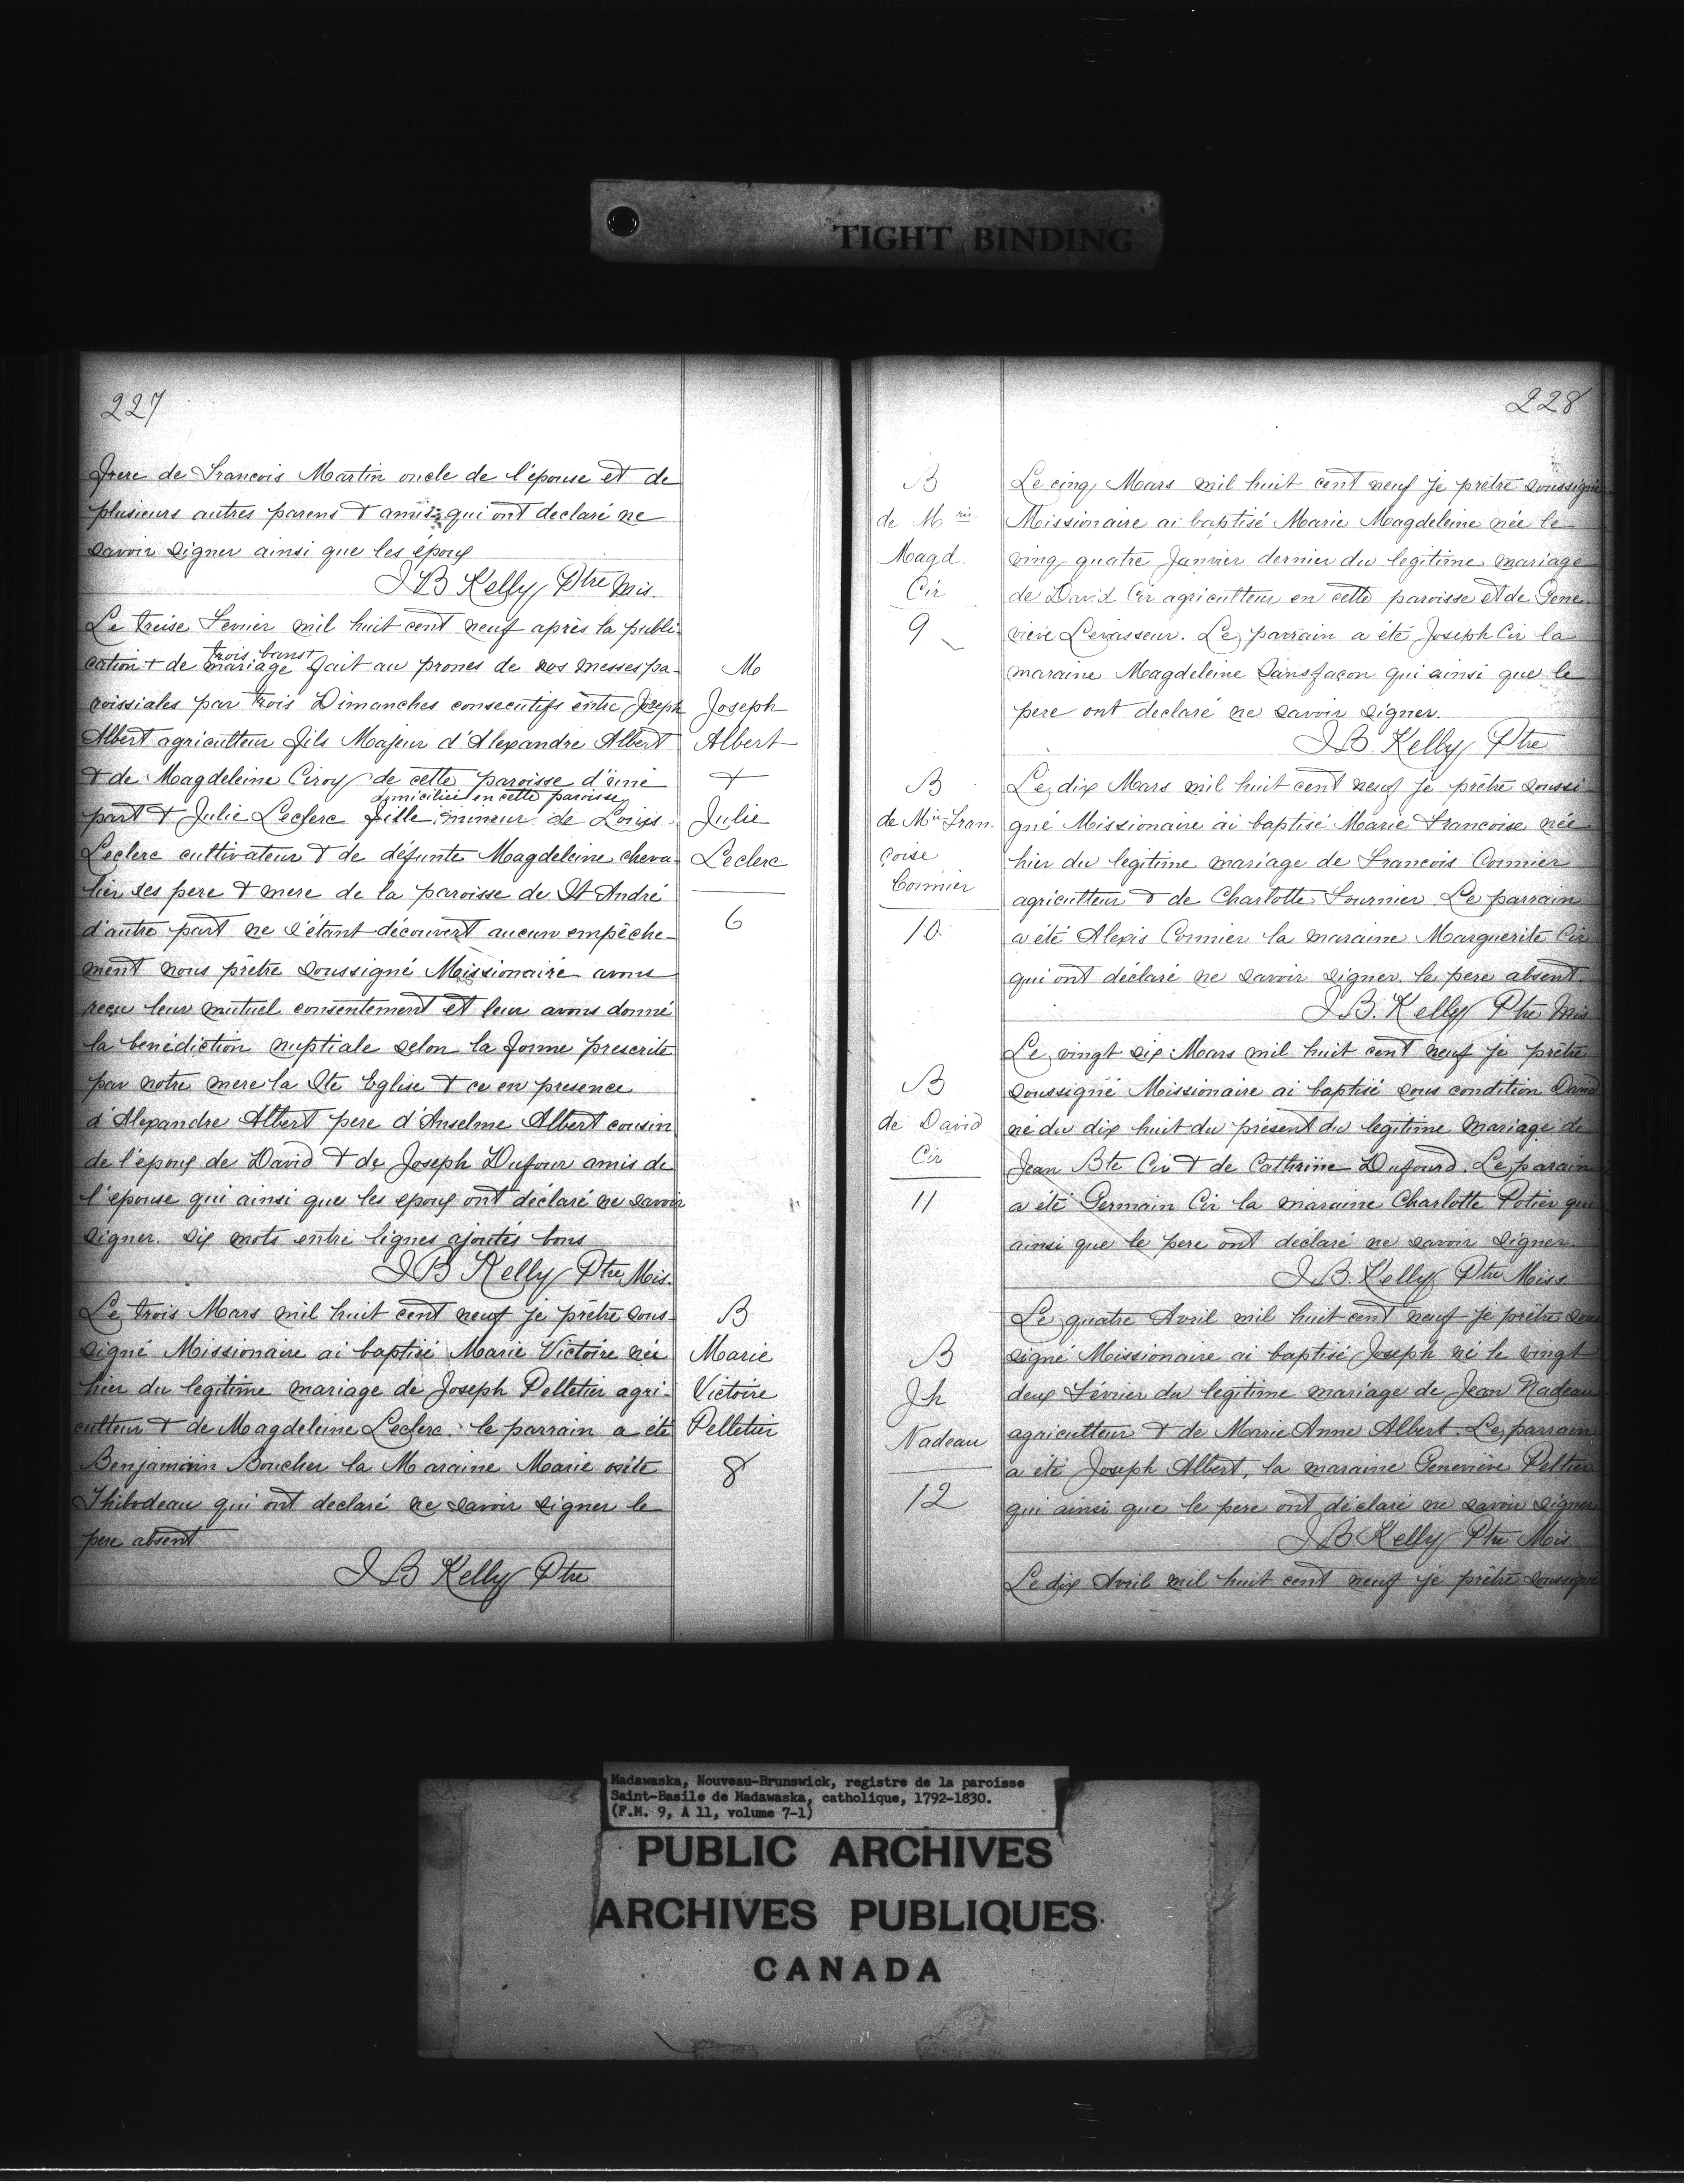 TIGHT BINDING
227
frere de Francois Martin oncle de l'épouse et de
plusieurs autres parens & amis qui ont declaré ne
savoir signer ainsi que les époux
J B Kelly Ptre Mis.
Le treise Fevrier mil huit cent neuf après la publi-
trois bans+
cation + de mariage fait au prones de nos messes pa-
roissiales par trois Dimanches consecutifs entre Joseph
Albert agriculteur fils Majeur d'Alexandre Albert
& de Magdeleine Ciroy de cette paroisse d'une
domiciliée en cette paroisse
part & Julie Leclerc fille mineur de Louis
Leclerc cultivateur & de défunte Magdeleine cheva-
lier ses pere & mere de la paroisse de St André
d'autre part ne s'étant découvert aucun empêche-
ment nous prêtre soussigné Missionaire avons
reçu leur mutuel consentement et leur avons donné
la benédiction nuptiale selon la forme prescrite
par notre mere la Ste Eglise & ce en presence
d'Alexandre Albert pere d'Anselme Albert cousin
de l'époux de David & de Joseph Dufour amis de
l'épouse qui ainsi que les epoux ont déclaré ne savoir
signer. six mots entre lignes ajoutés bons
J B Kelly Ptre Mis.
Le trois Mars mil huit cent neuf je prêtre sous-
signé Missionaire ai baptisé Marie Victoire née
hier du legitime mariage de Joseph Pelletier agri-
culteur & de Magdeleine Leclerc. le parrain a été
Benjamin Boucher la Maraine Marie osite
Thibodeau qui ont declaré ne savoir signer le
pere absent
J B Kelly Ptre
M
Joseph
Albert
+
Julie
Leclerc
6
B
Marie
Victoire
Pelletier
8
228
B
de M rie
Magd.
Cir
9
Le cinq Mars mil huit cent neuf je prêtre soussigné
Missionaire ai baptisé Marie Magdeleine née le
ving quatre Janvier dernier du legitime mariage
de David Cir agriculteur en cette paroisse et de Gene-
vieve Levasseur. Le parrain a été Joseph Cir la
maraine Magdeleine Sansfaçon qui ainsi que le
pere ont declaré ne savoir signer.
J B. Kelly Ptre
B
de Mie Fran-
çoise
Cormier
10
Le dix Mars mil huit cent neuf je prêtre soussi-
gné Missionaire ai baptisé Marie Francoise née
hier du legitime mariage de Francois Cormier
agriculteur & de Charlotte Fournier. Le parrain
a été Alexis Cormier la maraine Marguerite Cir
qui ont déclaré ne savoir signer. le pere absent.
J. B. Kelly Ptre Mis
B
de David
Cir
11
Le vingt six Mars mil huit cent neuf je prêtre
soussigné Missionaire ai baptisé sous condition David
né du dix huit du présent du legitime mariage de
Jean Bte Cir & de Cathrine Dufourd. Le parain
a été Germain Cir la maraine Charlotte Potier qui
ainsi que le pere ont déclaré ne savoir signer.
J. B. Kelly Ptre Miss
B
Jh
Nadeau
12
Le quatre Avril mil huit cent neuf je prêtre sou
signé Missionaire ai baptisé Joseph né le vingt
deux Février du legitime mariage de Jean Nadeau
agriculteur & de Marie Anne Albert. Le parrain
a été Joseph Albert, la maraine Geneviève Peltier
qui ainsi que le pere ont déclaré ne savoir signer
J B Kelly Ptre Mis.
Le dix Avril mil huit cent neuf je prêtre soussigné
Madawaska, Nouveau-Brunswick, registre de la paroisse
Saint-Basile de Madawaska, catholique, 1792-1830.
(F.M. 9, A 11, volume 7-1)
PUBLIC ARCHIVES
ARCHIVES PUBLIQUES
CANADA